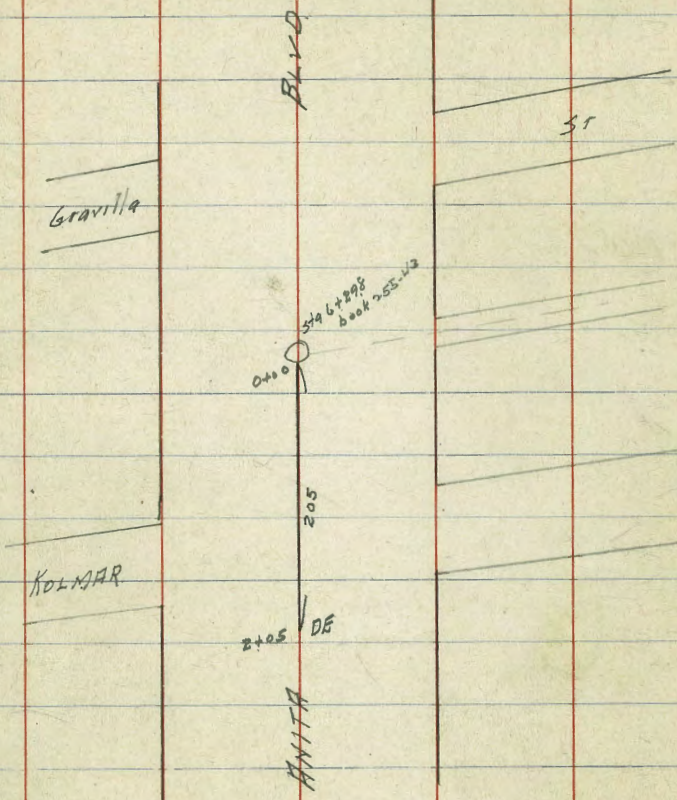 BLVD
ST
Gravilla
Sta 6+298
book 255-43
0+00
205
KOLMAR
2+05 DE
ANITA